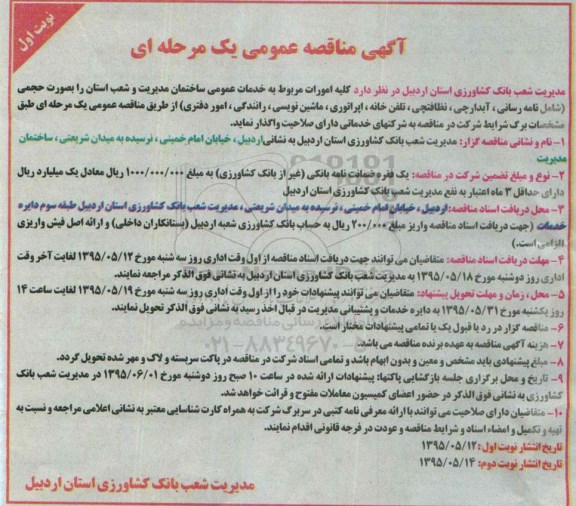 نوبت اول
آگهی مناقصه عمومی یک مرحله ای
مدیریت شعب بانک کشاورزی استان اردبیل در نظر دارد کلیه امورات مربوط به خدمات عمومی ساختمان مدیریت و شعب استان را بصورت حجمی
(شامل نامه رسانی ، آبدارچی ، نظافتچی ، تلفن خانه ، اپراتوری ، ماشین نویسی ، رانندگی ، امور دفتری) از طریق مناقصه عمومی یک مرحله ای طبق
مشخصات برگ شرایط شرکت در مناقصه به شرکتهای خدماتی دارای صلاحیت واگذار نماید.
۱- نام و نشانی مناقصه گزار: مدیریت شعب بانک کشاورزی استان اردبیل به نشانی اردبیل ، خیابان امام خمینی ، نرسیده به میدان شریعتی ، ساختمان
مدیریت
۲- نوع و مبلغ تضمین شرکت در مناقصه: یک فقره ضمانت نامه بانکی (غیر از بانک کشاورزی) به مبلغ ۱۰۰۰/۰۰۰/۰۰۰ ریال معادل یک میلیارد ریال
دارای حداقل ۳ ماه اعتبار به نفع مدیریت شعب بانک کشاورزی استان اردبیل
۳- محل دریافت اسناد مناقصه: اردبیل ، خیابان امام خمینی ، نرسیده به میدان شریعتی ، مدیریت شعب بانک کشاورزی استان اردبیل طبقه سوم دایره
خدمات (جهت دریافت اسناد مناقصه واریز مبلغ ۲۰۰/۰۰۰ ریال به حساب بانک کشاورزی شعبه اردبیل (بستانکاران داخلی) و ارائه اصل فیش واریزی
الزامی است.)
۴- مهلت دریافت اسناد مناقصه: متقاضیان می توانند جهت دریافت اسناد مناقصه از اول وقت اداری روز سه شنبه مورخ ۱۳۹۵/۰۵/۱۲ لغایت آخر وقت
اداری روز دوشنبه مورخ ۱۳۹۵/۰۵/۱۸ به مدیریت شعب بانک کشاورزی استان اردبیل به نشانی فوق الذکر مراجعه نمایند.
۵- محل ، زمان و مهلت تحویل پیشنهاد: متقاضیان می توانند پیشنهادات خود را از اول وقت اداری روز سه شنبه مورخ ۱۳۹۵/۰۵/۱۹ لغایت ساعت ۱۴
روز یکشنبه مورخ ۱۳۹۵/۰۵/۳۱ به دایره خدمات و پشتیبانی مدیریت در قبال اخذ رسید به نشانی فوق الذکر تحویل نمایند.
۶- مناقصه گزار در رد یا قبول یک یا تمامی پیشنهادات مختار است.
۷- هزینه آگهی مناقصه به عهده برنده مناقصه می باشد.
۸- مبلغ پیشنهادی باید مشخص و معین و بدون ابهام باشد و تمامی اسناد شرکت در مناقصه در پاکت سربسته و لاک و مهر شده تحویل گردد.
۹- تاریخ و محل برگزاری جلسه بازگشایی پاکتها: پیشنهادات ارائه شده در ساعت ۱۰ صبح روز دوشنبه مورخ ۱۳۹۵/۰۶/۰۱ در مدیریت شعب بانک
کشاورزی به نشانی فوق الذکر در حضور اعضای کمیسیون معاملات مفتوح و قرائت خواهد شد.
۱۰- متقاضیان دارای صلاحیت می توانند با ارائه معرفی نامه کتبی در سربرگ شرکت به همراه کارت شناسایی معتبر به نشانی اعلامی مراجعه و نسبت به
تهیه و تکمیل و امضاء اسناد و شرایط مناقصه و عودت در فرجه قانونی اقدام نمایند.
تاریخ انتشار نوبت اول: ۱۳۹۵/۰۵/۱۲
تاریخ انتشار نوبت دوم: ۱۳۹۵/۰۵/۱۴
مدیریت شعب بانک کشاورزی استان اردبیل
۰۲۱-۸۸۳۴۹۶۷۰